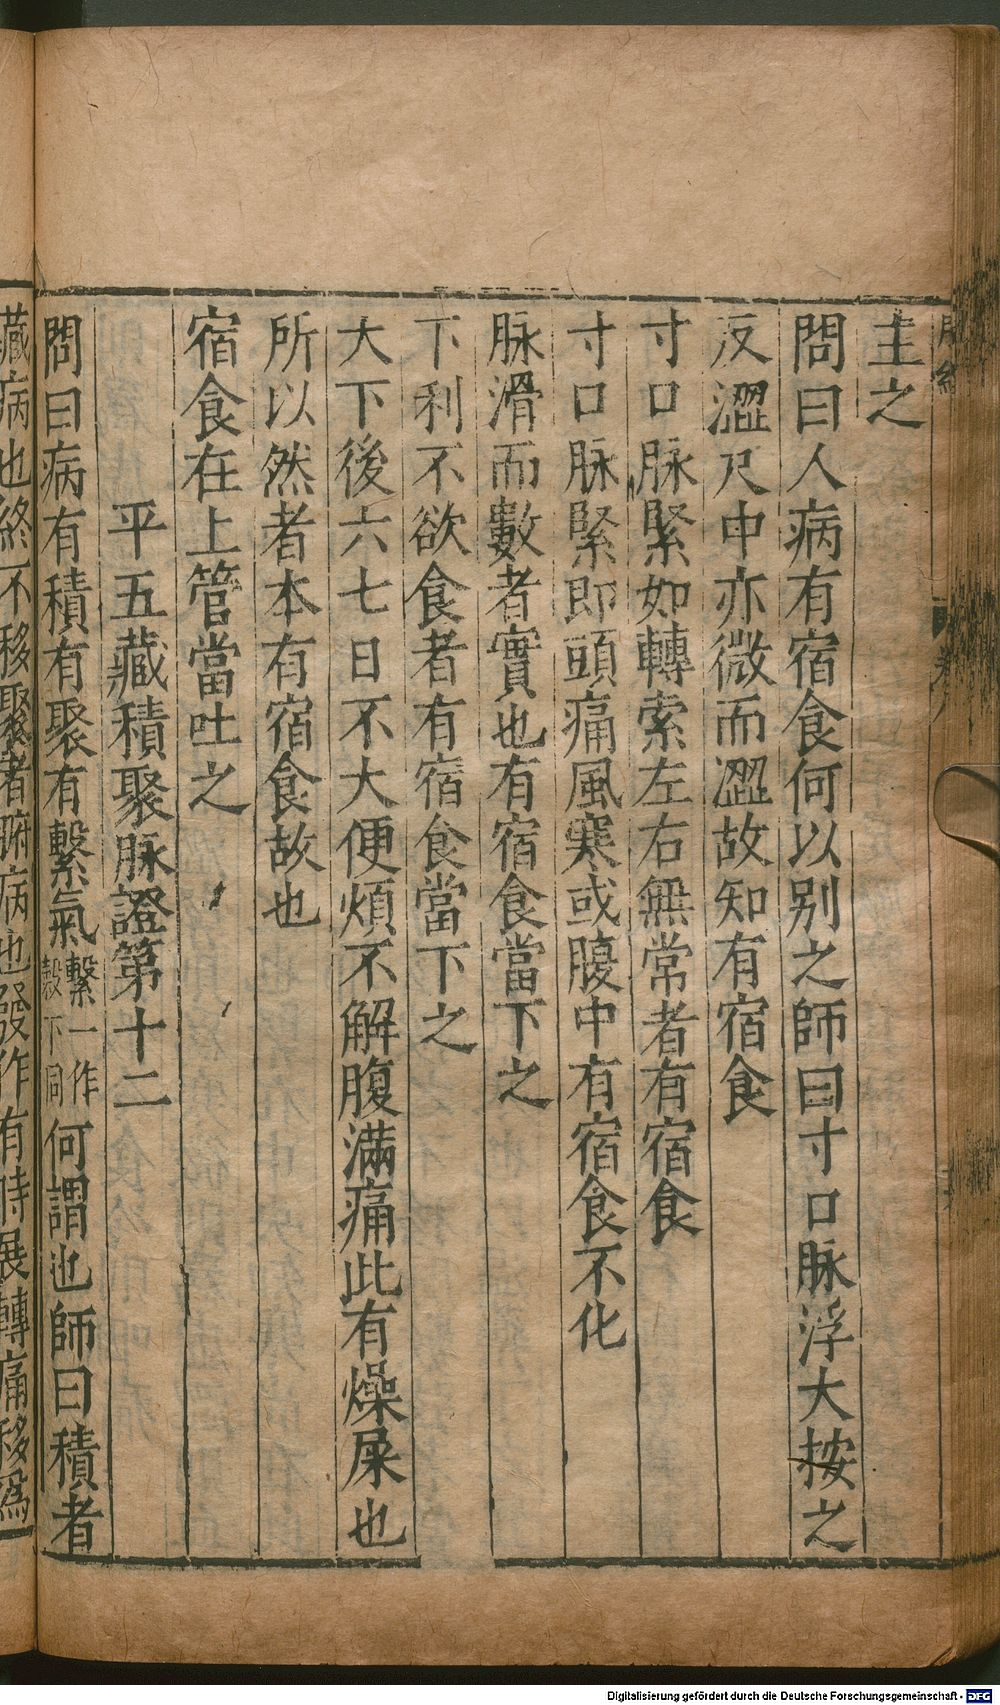 主之
問曰人病有宿食何以别之師曰寸口脉浮大按之
反澀尺中亦微而澀故知有宿食
寸口脉緊如轉索左右無常者有宿食
寸口脉緊即頭痛風寒或腹中有宿食不化
脉滑而數者實也有宿食當下之
下利不欲食者有宿食當下之
大下後六七日不大便煩不解腹滿痛此有燥屎也
所以然者本有宿食故也
宿食在上管當吐之
平五藏積聚脉證第十二
問曰病有積有聚有繫氣繫一作穀下同何謂也師曰積者
藏病也終不移聚者腑病也發作有時展轉痛移爲
Digitalisierung gefördert durch die Deutsche Forschungsgemeinschaft - DFG